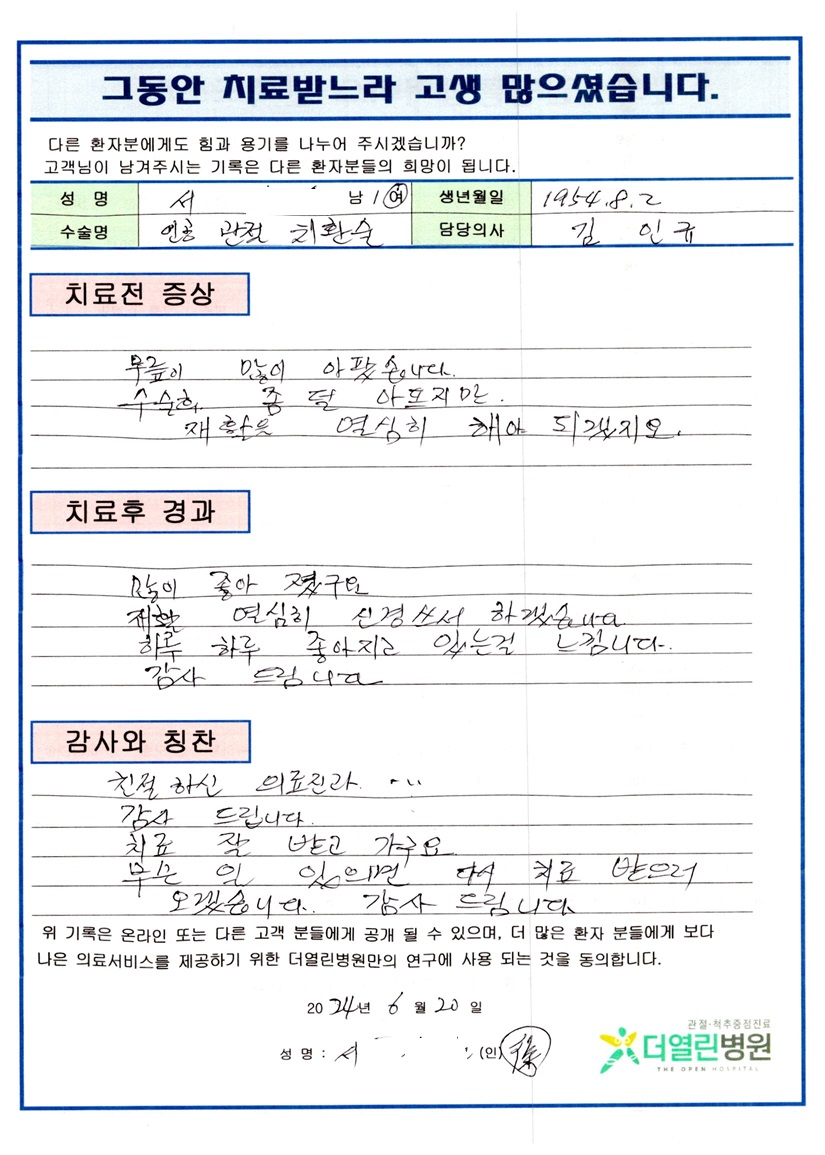 그동안 치료받느라 고생 많으셨습니다.
다른 환자분에게도 힘과 용기를 나누어 주시겠습니까?
고객님이 남겨주시는 기록은 다른 환자분들의 희망이 됩니다.
성 명 서 남 / 여 생년월일 1954.8.2
수술명 인공 관절 치환술 담당의사 김 인규
치료전 증상
무릎이 많이 아팠습니다.
수술후 좀 덜 아프지만.
재활은 열심히 해야 되겠지요.
치료후 경과
많이 좋아 졌구요
재활 열심히 신경쓰서 하겠습니다
하루 하루 좋아지고 있는걸 느낌니다.
감사 드립니다
감사와 칭찬
친절하신 의료진과...
감사 드립니다.
치료 잘 받고 가구요
무슨 일 있으면 다시 치료 받으러
오겠습니다. 감사 드립니다
위 기록은 온라인 또는 다른 고객 분들에게 공개 될 수 있으며, 더 많은 환자 분들에게 보다
나은 의료서비스를 제공하기 위한 더열린병원만의 연구에 사용 되는 것을 동의합니다.
2024년 6월 20일
성 명 : 서 (인) 徐
관절·척추중점진료
더열린병원
THE OPEN HOSPITAL